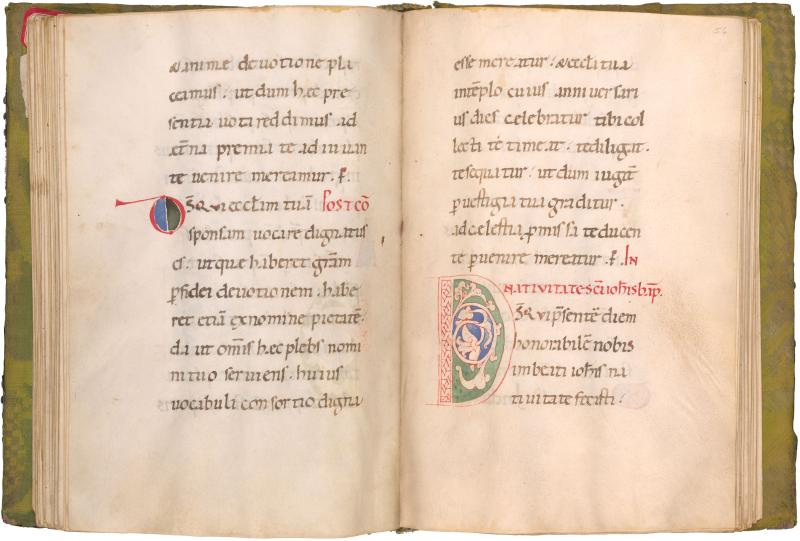 & animę deuotione pla
ceamus. ut dum hęc pre
sentia uota reddimus ad
ęt̄na premia te adiuuan
te uenire mereamur. P̄.
D̄s qui eccl̄am tuā Post cō
sponsam uocare dignatus
es. ut que haberet gr̄am
p̱ fidei deuotionem. habe
ret etiā ex nomine pietatē.
da ut om̄is hęc plebs nomi
ni tuo seruiens. huius
uocabuli consortio digna
56
esse mereatur. & eccl̄a tua
in tēplo cuius anniuersari
us dies celebratur tibi col
lecta te timeat. te diligat.
te sequatur. ut dum iugit̄
p̱ uestigia tua graditur.
ad cęlestia p̱missa te ducen
te p̱uenire mereatur. P̄. In
natiuitate sc̄i ioh̄is bap̄.
D̄s qui p̄sentē diem
honorabilē nobis
in beati ioh̄is na
tiuitate fecisti.